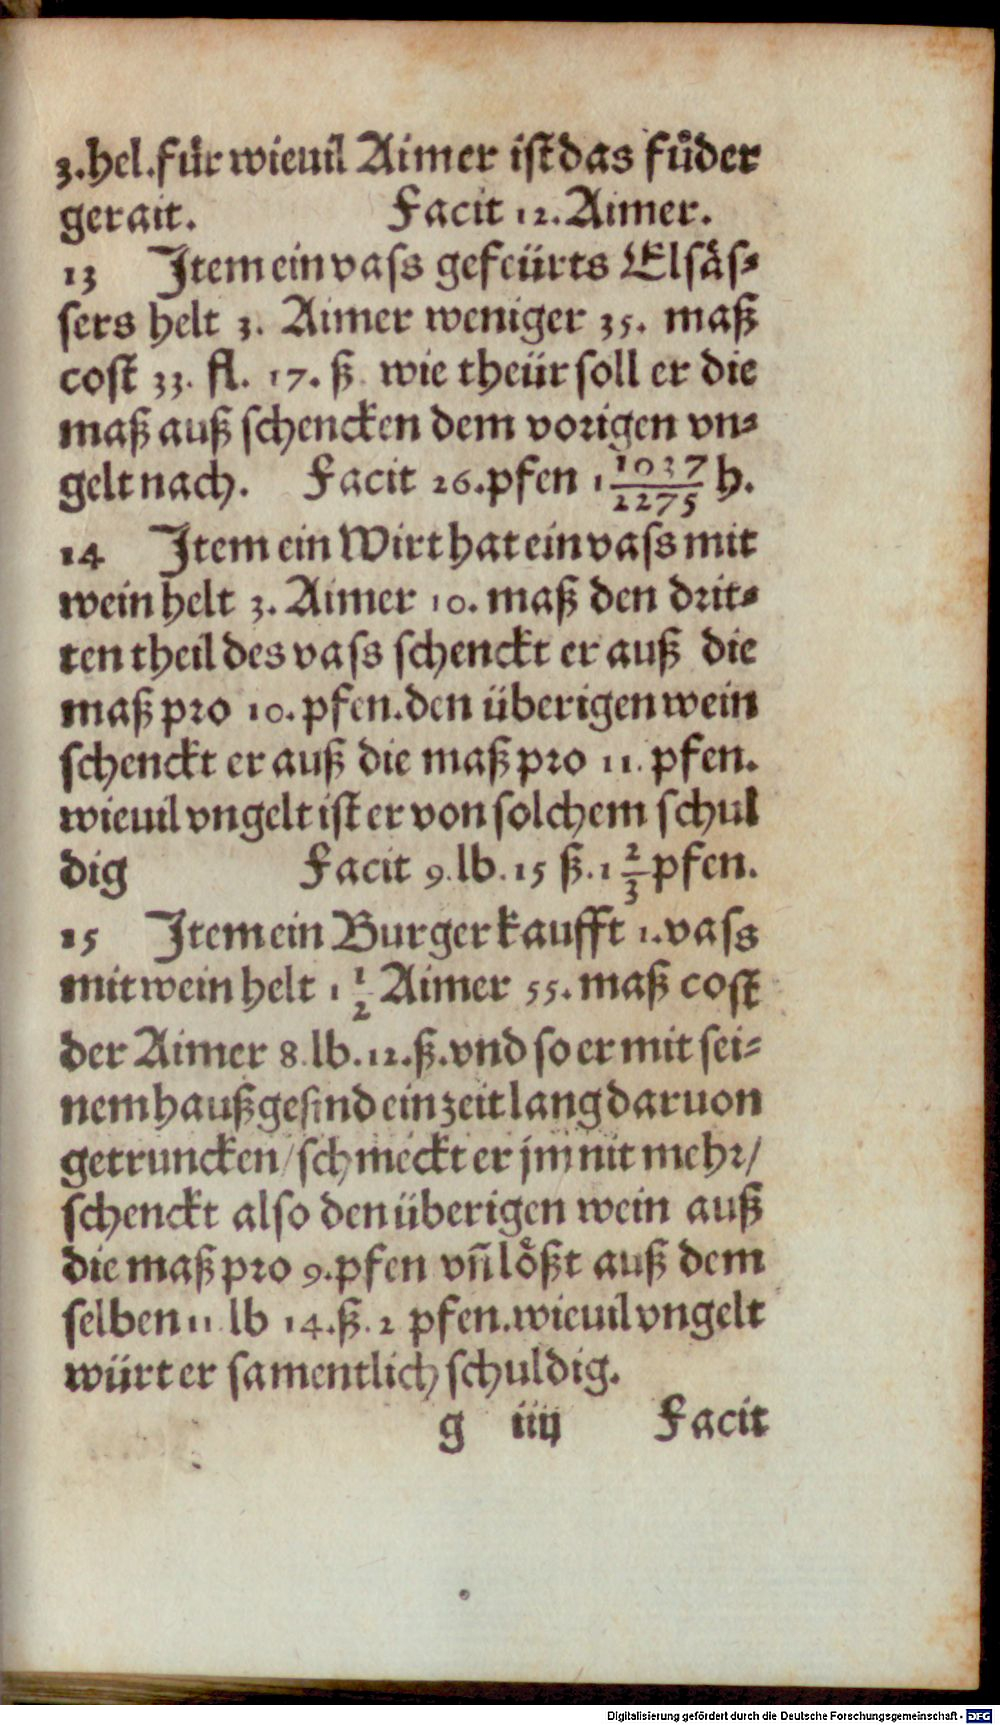 3.hel.für wieuil Aimer ist das fůder
gerait. Facit 12. Aimer.
13 Item ein vass gefeürts Elsås⸗
sers helt 3. Aimer weniger 35. maß
cost 33. fl. 17. ß wie theür soll er die
maß auß schencken dem vorigen vn⸗
gelt nach. Facit 26.pfen 1 1037/2275 h.
14 Item ein Wirt hat ein vass mit
wein helt 3. Aimer 10. maß den drit⸗
ten theil des vass schenckt er auß die
maß pro 10. pfen.den überigen wein
schenckt er auß die maß pro 11. pfen.
wieuil vngelt ist er von solchem schul
dig Facit 9. lb. 15 ß. 1 2/3 pfen.
15 Item ein Burger kaufft 1. vass
mit wein helt 1 1/2 Aimer 55. maß cost
der Aimer 8. lb. 12. ß. vnd so er mit sei⸗
nem haußgesind ein zeit lang daruon
getruncken/ schmeckt er jm nit mehr/
schenckt also den überigen wein auß
die maß pro 9. pfen vñ lößt auß dem
selben 11 lb 14. ß. 2 pfen. wieuil vngelt
würt er samentlich schuldig.
g iiij Facit
Digitalisierung gefördert durch die Deutsche Forschungsgemeinschaft - DFG